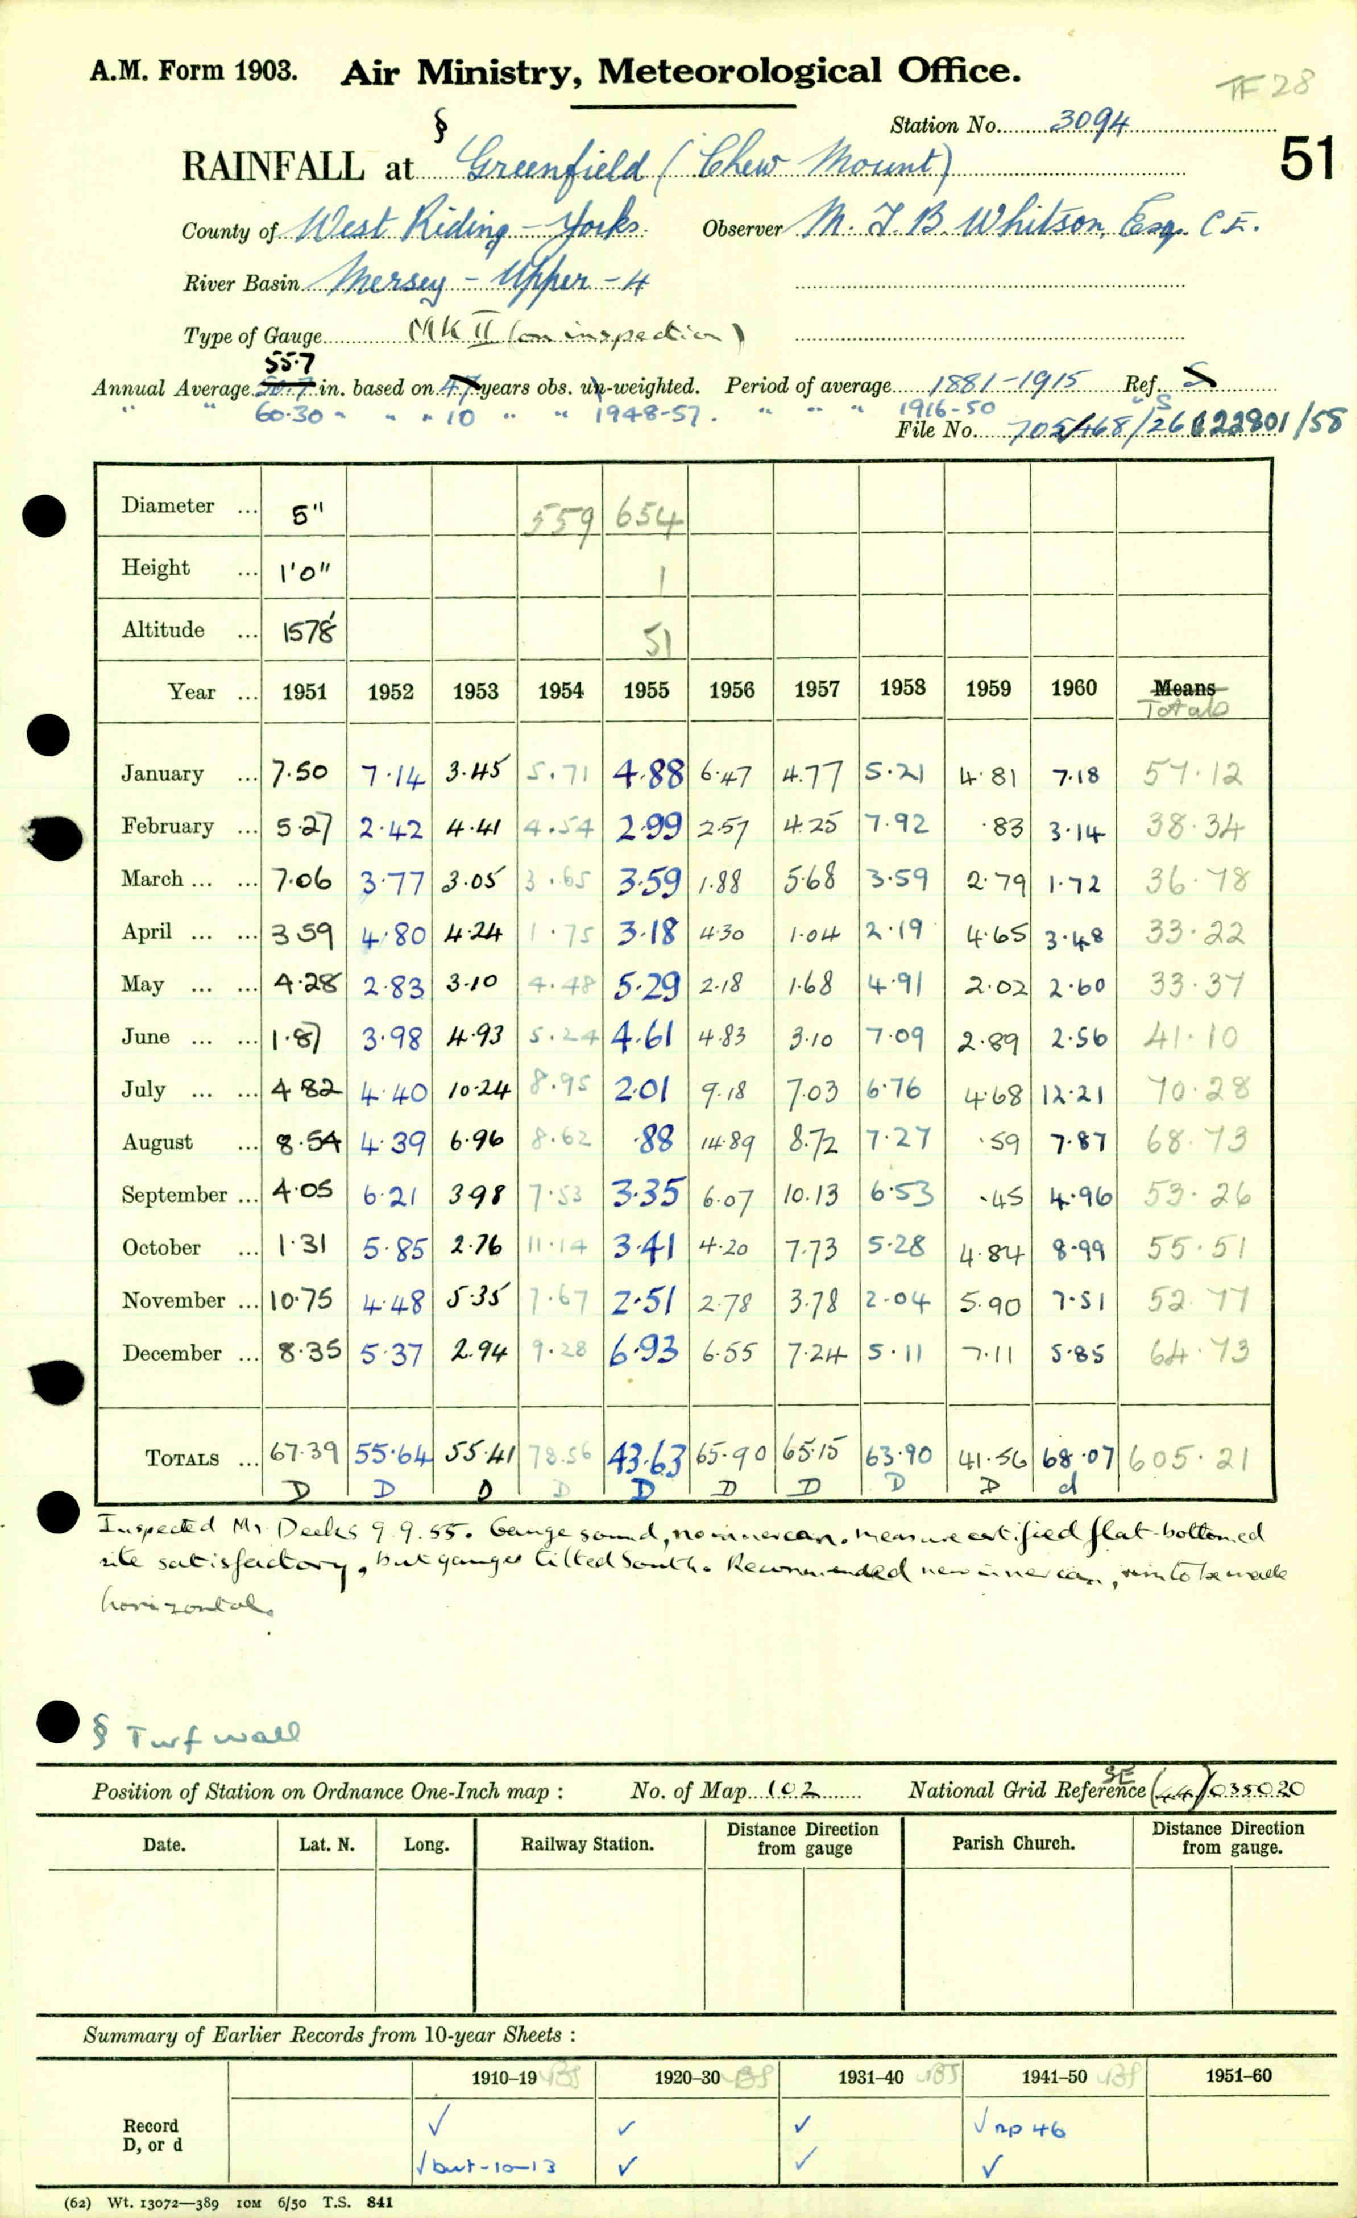 A.M. Form 1903. Air Ministry, Meteorological Office.
TF 28
Station No. 3094
51
§
RAINFALL at Greenfield (Chew Mount)
County of West Riding - Yorks. Observer M. J. B. Whitson, Esq. C.E.
River Basin Mersey - Upper - 4
Type of Gauge MK II (on inspection)
55.7
Annual Average 50.7 in. based on 47 years obs. un-weighted. Period of average 1881-1915 Ref. S
" " 60.30 " " " 10 " " 1948-57. " " " 1916-50 " S
File No. 705468/26 C22801/58
Diameter ... 5" 559 654
Height ... 1'0" 1
Altitude ... 1578' 51
Year ... 1951 1952 1953 1954 1955 1956 1957 1958 1959 1960 Means
Totals
January ... 7.50 7.14 3.45 5.71 4.88 6.47 4.77 5.21 4.81 7.18 57.12
February ... 5.27 2.42 4.41 4.54 2.99 2.57 4.25 7.92 .83 3.14 38.34
March ... ... 7.06 3.77 3.05 3.65 3.59 1.88 5.68 3.59 2.79 1.72 36.78
April ... ... 3.59 4.80 4.24 1.75 3.18 4.30 1.04 2.19 4.65 3.48 33.22
May ... ... 4.28 2.83 3.10 4.48 5.29 2.18 1.68 4.91 2.02 2.60 33.37
June ... ... 1.87 3.98 4.93 5.24 4.61 4.83 3.10 7.09 2.89 2.56 41.10
July ... ... 4.82 4.40 10.24 8.95 2.01 9.18 7.03 6.76 4.68 12.21 70.28
August ... 8.54 4.39 6.96 8.62 .88 14.89 8.72 7.27 .59 7.87 68.73
September ... 4.05 6.21 3.98 7.53 3.35 6.07 10.13 6.53 .45 4.96 53.26
October ... 1.31 5.85 2.76 11.14 3.41 4.20 7.73 5.28 4.84 8.99 55.51
November ... 10.75 4.48 5.35 7.67 2.51 2.78 3.78 2.04 5.90 7.51 52.77
December ... 8.35 5.37 2.94 9.28 6.93 6.55 7.24 5.11 7.11 5.85 64.73
TOTALS ... 67.39 55.64 55.41 78.56 43.63 65.90 65.15 63.90 41.56 68.07 605.21
D D D D D D D D D d
Inspected Mr Deeks 9.9.55. Gauge sound, no inner can. Measure certified flat-bottomed
site satisfactory, but gauge tilted South. Recommended new inner can, rim to be made
horizontal.
§ Turf wall
Position of Station on Ordnance One-Inch map : No. of Map 102 National Grid Reference SE (44) 035020
Date. Lat. N. Long. Railway Station. Distance Direction from gauge Parish Church. Distance Direction from gauge.
Summary of Earlier Records from 10-year Sheets :
1910–19 1920–30 1931–40 1941–50 1951–60
Record ✓ ✓ ✓ ✓ np 46
D, or d ✓ but -10-13 ✓ ✓ ✓
(62) Wt. 13072—389 10M 6/50 T.S. 841